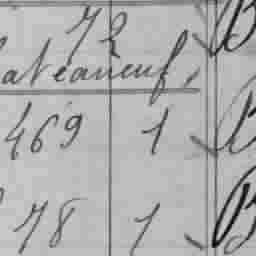 72
ateauneuf,
469 1 B
78 1 B